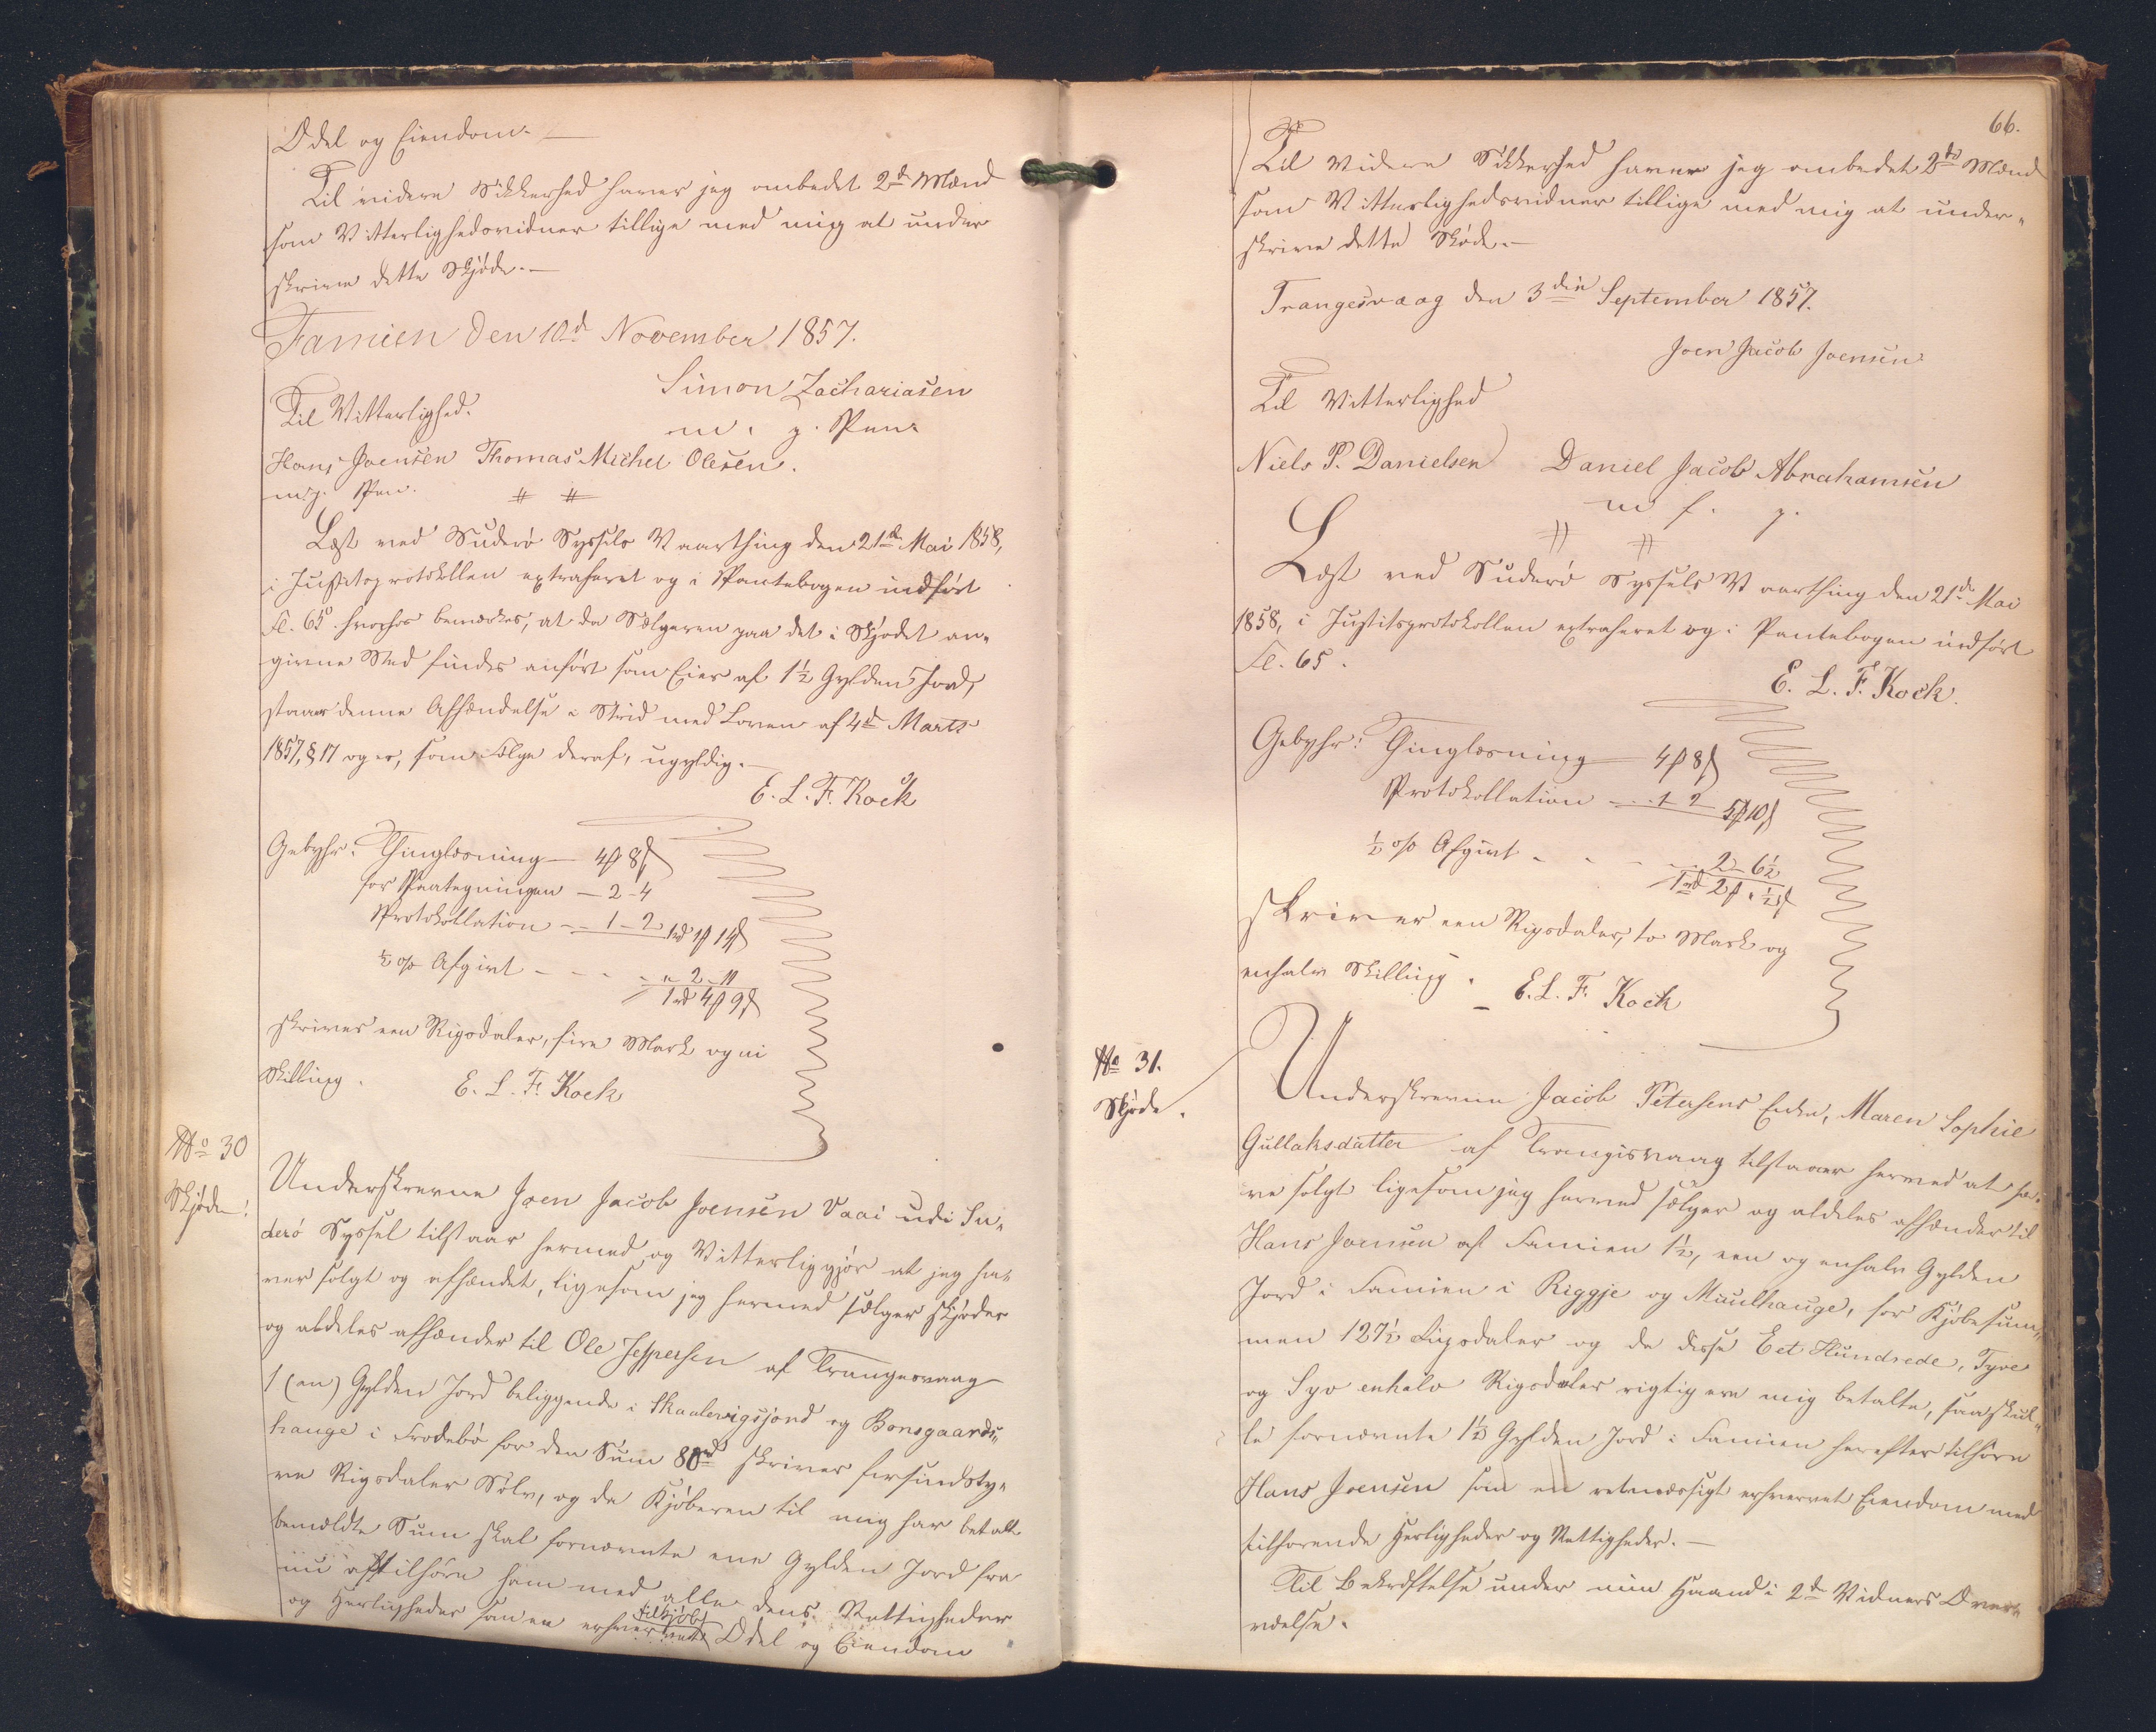 Odel og Eiendom. —
Til videre Sikkerhed haver jeg ombedet 2de Mænd
som Vitterlighedsvidner tillige med mig at under
skrive dette Skjøde. —
Famien den 10de November 1857.
Simon Zachariasen
m. g. Pen.
Til Vitterlighed.
Hans Joensen Thomas Michel Olesen.
m. g. Pen. # #
Læst ved Suderø Syssels Vaarthing den 21de Mai 1858,
i Justitsprotokollen extraheret og i Pantebogen indført
Fl. 65. hvorhos bemærkes, at da Sælgeren paa det i Skjødet an-
givne Sted findes anført som Eier af 1½ Gylden Jord,
staaer denne Afhændelse i Strid med Loven af 4de Marts
1857, § 17 og er, som Følge deraf, ugyldig. —
E. L. F. Kock
Gebyhr: Thinglæsning — 4 ₰ 8 ſ
for Paategningen — 2 - 4
Protokollation — 1 - 2 1 rd 1 ₰ 14 ſ
½ % Afgivt - - - - " 2 - 11
1 rd 4 ₰ 9 ſ
skriver een Rigsdaler, fire Mark og ni
Skilling. E. L. F. Kock
No 30
Skjøde:
Underskrevne Joen Jacob Joensen Vaai udi Su-
derø Syssel tilstaar hermed og Vitterliggjør at jeg ha-
ver solgt og afhændet, ligesom jeg hermed sælger skjøder
og aldeles afhænder til Ole Jespersen af Trangesvaag
1 (en) Gylden Jord beliggende i Skaalevigsjord og Bonsgaards-
hauge i Frodebø for den Sum 80 rd skriver firsindsty-
ve Rigsdaler Sølv, og da Kjøberen til mig har betalt
bemældte Sum skal fornævnte ene Gylden Jord fra
nu af tilhøre ham med alle dens Rettigheder
og Herligheder som en erhvervet tilkjøbt Odel og Eiendom
66.
Til videre Sikkerhed haver jeg ombedet 2de Mænd
som Vitterlighedsvidner tillige med mig at under-
skrive dette Skøde. —
Trangesvaag den 3die September 1857.
Joen Jacob Joensen
Til Vitterlighed
Niels P. Danielsen Daniel Jacob Abrahamsen
m f. g.
# #
Læst ved Suderø Syssels Vaarthing den 21de Mai
1858, i Justitsprotokollen extraheret og i Pantebogen indført
Fl. 65.
E. L. F. Kock.
Gebyhr: Thinglæsning — 4 ₰ 8 ſ
Protokollation — 1 - 2 5 ₰ 10 ſ
½ % Afgivt - - - - 2 - 6½
1 rd 2 ₰ " ½ ſ
skriver een Rigsdaler, to Mark og
enhalv Skilling. E. L. F. Kock
No 31.
Skjøde.
Underskrevne Jacob Petersens Enke, Maren Sophie
Gullaksdatter af Trangisvaag tilstaaer hermed at ha-
ve solgt ligesom jeg hermed sælger og aldeles afhænder til
Hans Joensen af Famien 1½, een og enhalv Gylden
Jord i Famien i Riggje og Muulhauge, for Kjøbesum-
men 127½ Rigsdaler og da disse Eet Hundrede, Tyve
og Syv enhalv Rigsdaler rigtig ere mig betalte, saa skul-
le fornævnte 1½ Gylden Jord i Famien herefter tilhøre
Hans Joensen som en retmæssigt erhvervet Eiendom med
tilhørende Herligheder og Rettigheder. —
Til Bekræftelse under min Haand i 2de Vidners Over-
værelse.